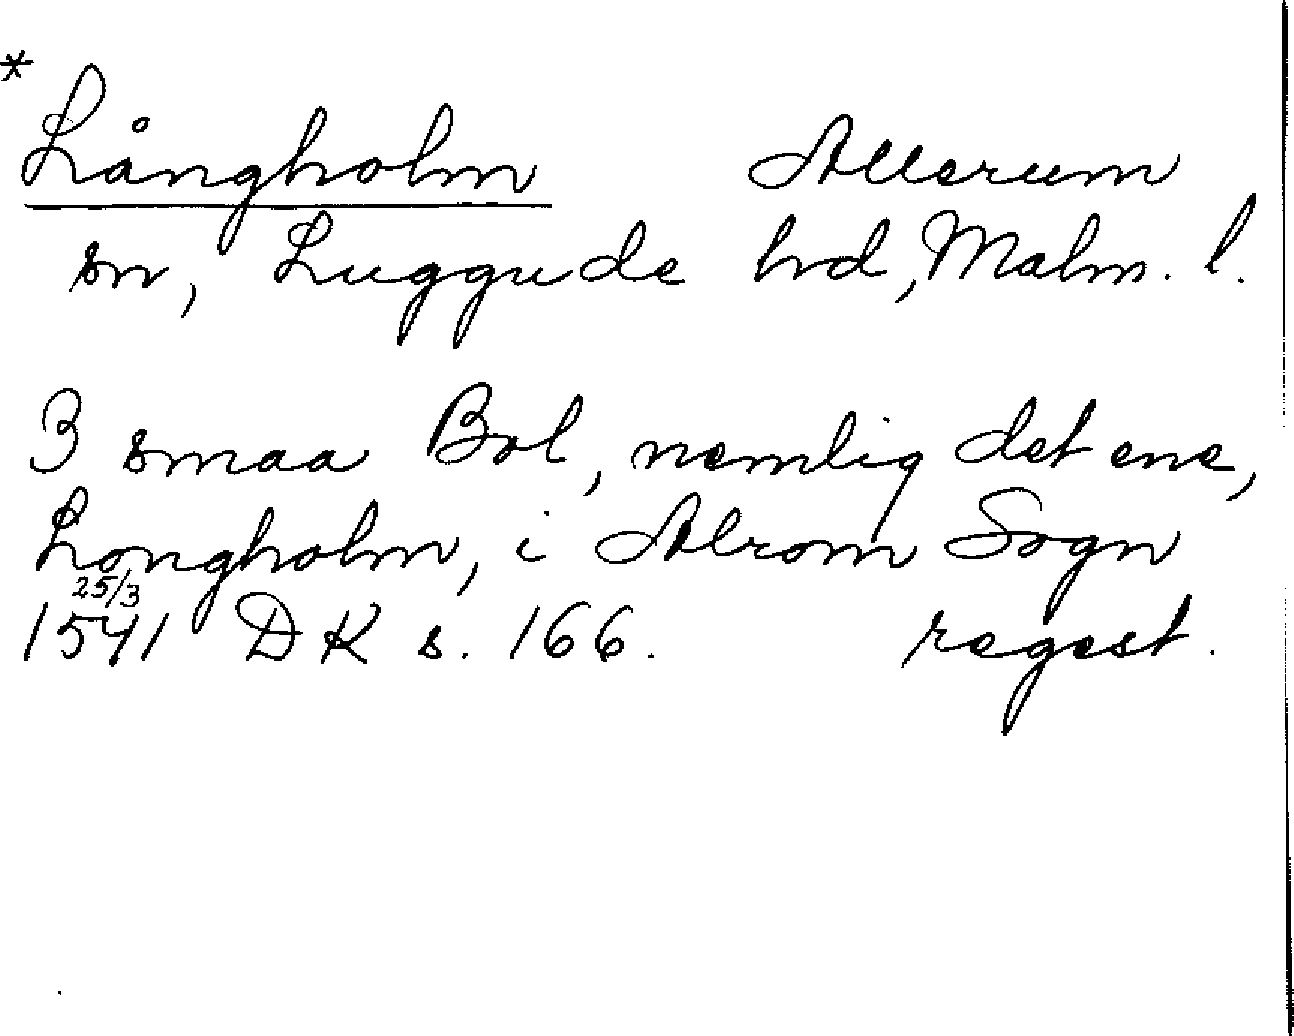 *
Långholm Allerum
sn, Luggude hrd, Malm. l.
3 smaa Bol, nemlig det ene,
Longholm, i Alrom Sogn
25/3
1541 DK s. 166. regest.